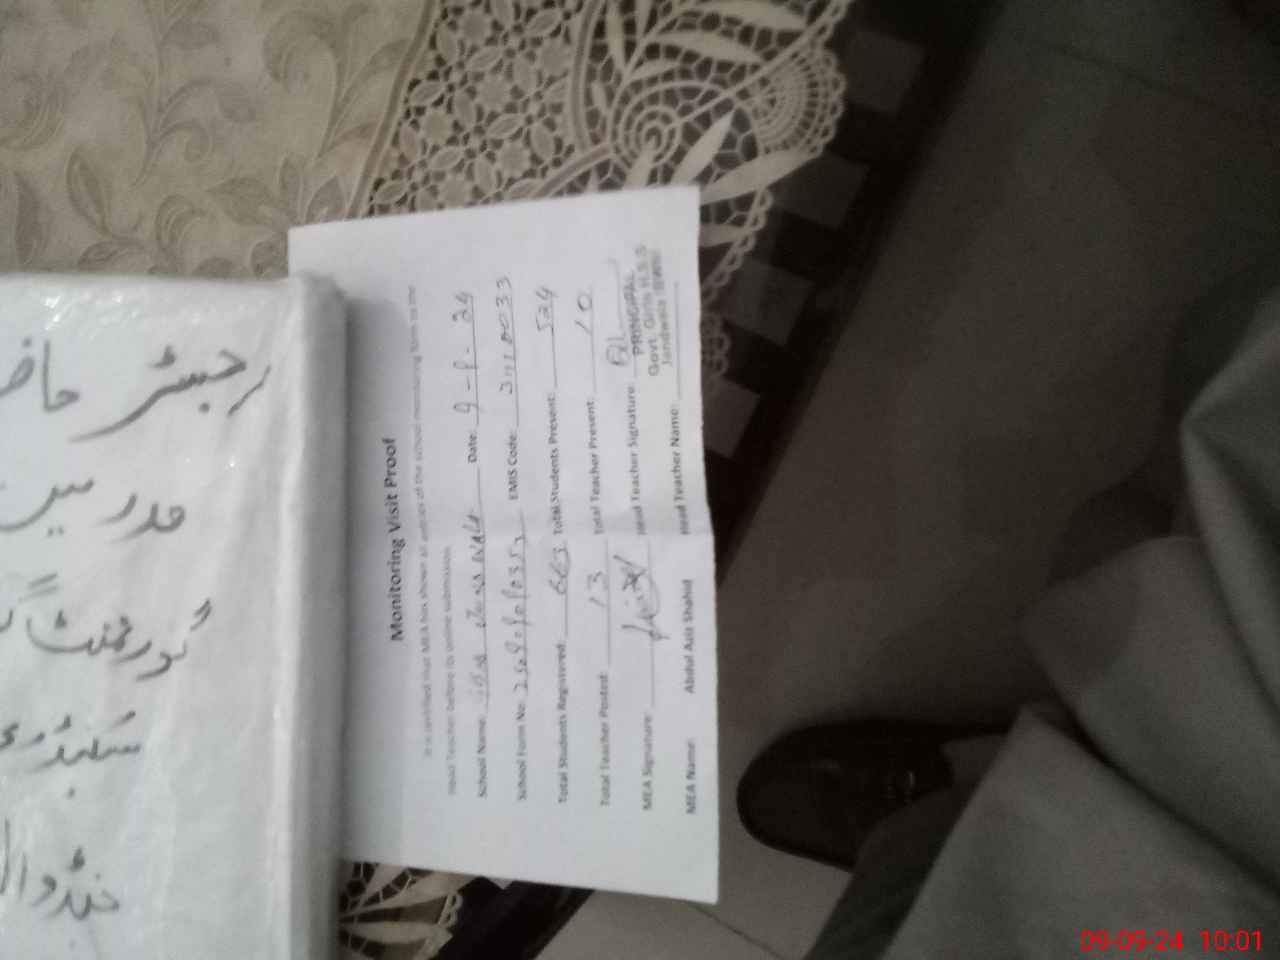 رجسٹر حاضر
مدرسین
گورنمنٹ گر
سکینڈری
جنڈوالا
Monitoring Visit Proof
It is certified that MEA has shown all entries of the school monitoring form to the
Head Teacher before its online submission.
School Name: Date: 9-9-24
School Form No: EMIS Code:
Total Students Registered: 663 Total Students Present: 524
Total Teacher Posted: 13 Total Teacher Present: 10
MEA Signature: Head Teacher Signature:
PRINCIPAL
Govt. Girls H.S.S
Jandwala
MEA Name: Abdul Aziz Shahid Head Teacher Name:
09-09-24 10:01